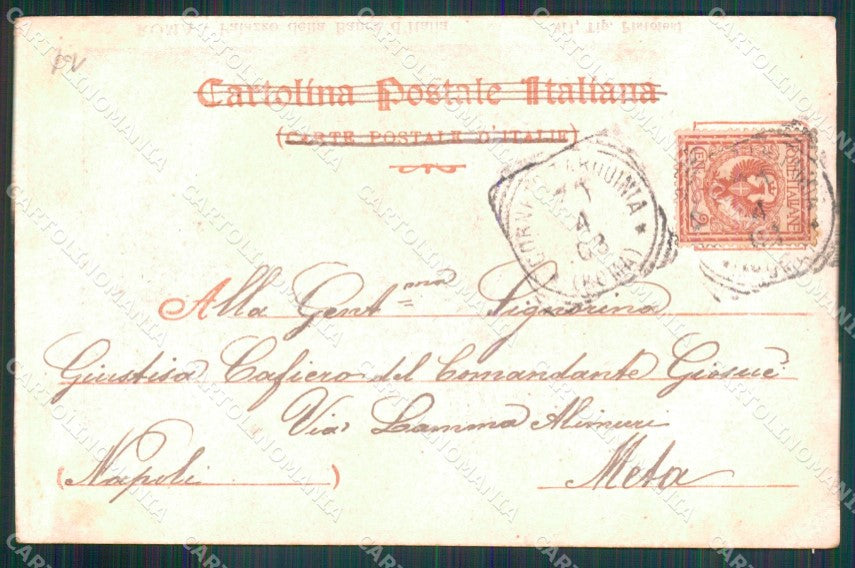 Cartolina Postale Italiana
(CARTE POSTALE D'ITALIE)
CORNETO TARQUINIA
(ROMA)
POSTE ITALIANE
Alla Gent.ma Signorina
Giustisa Cafiero del Comandante Giosuè
Via Lamma Alimuri
(Napoli) Meta
CARTOLINOMANIA